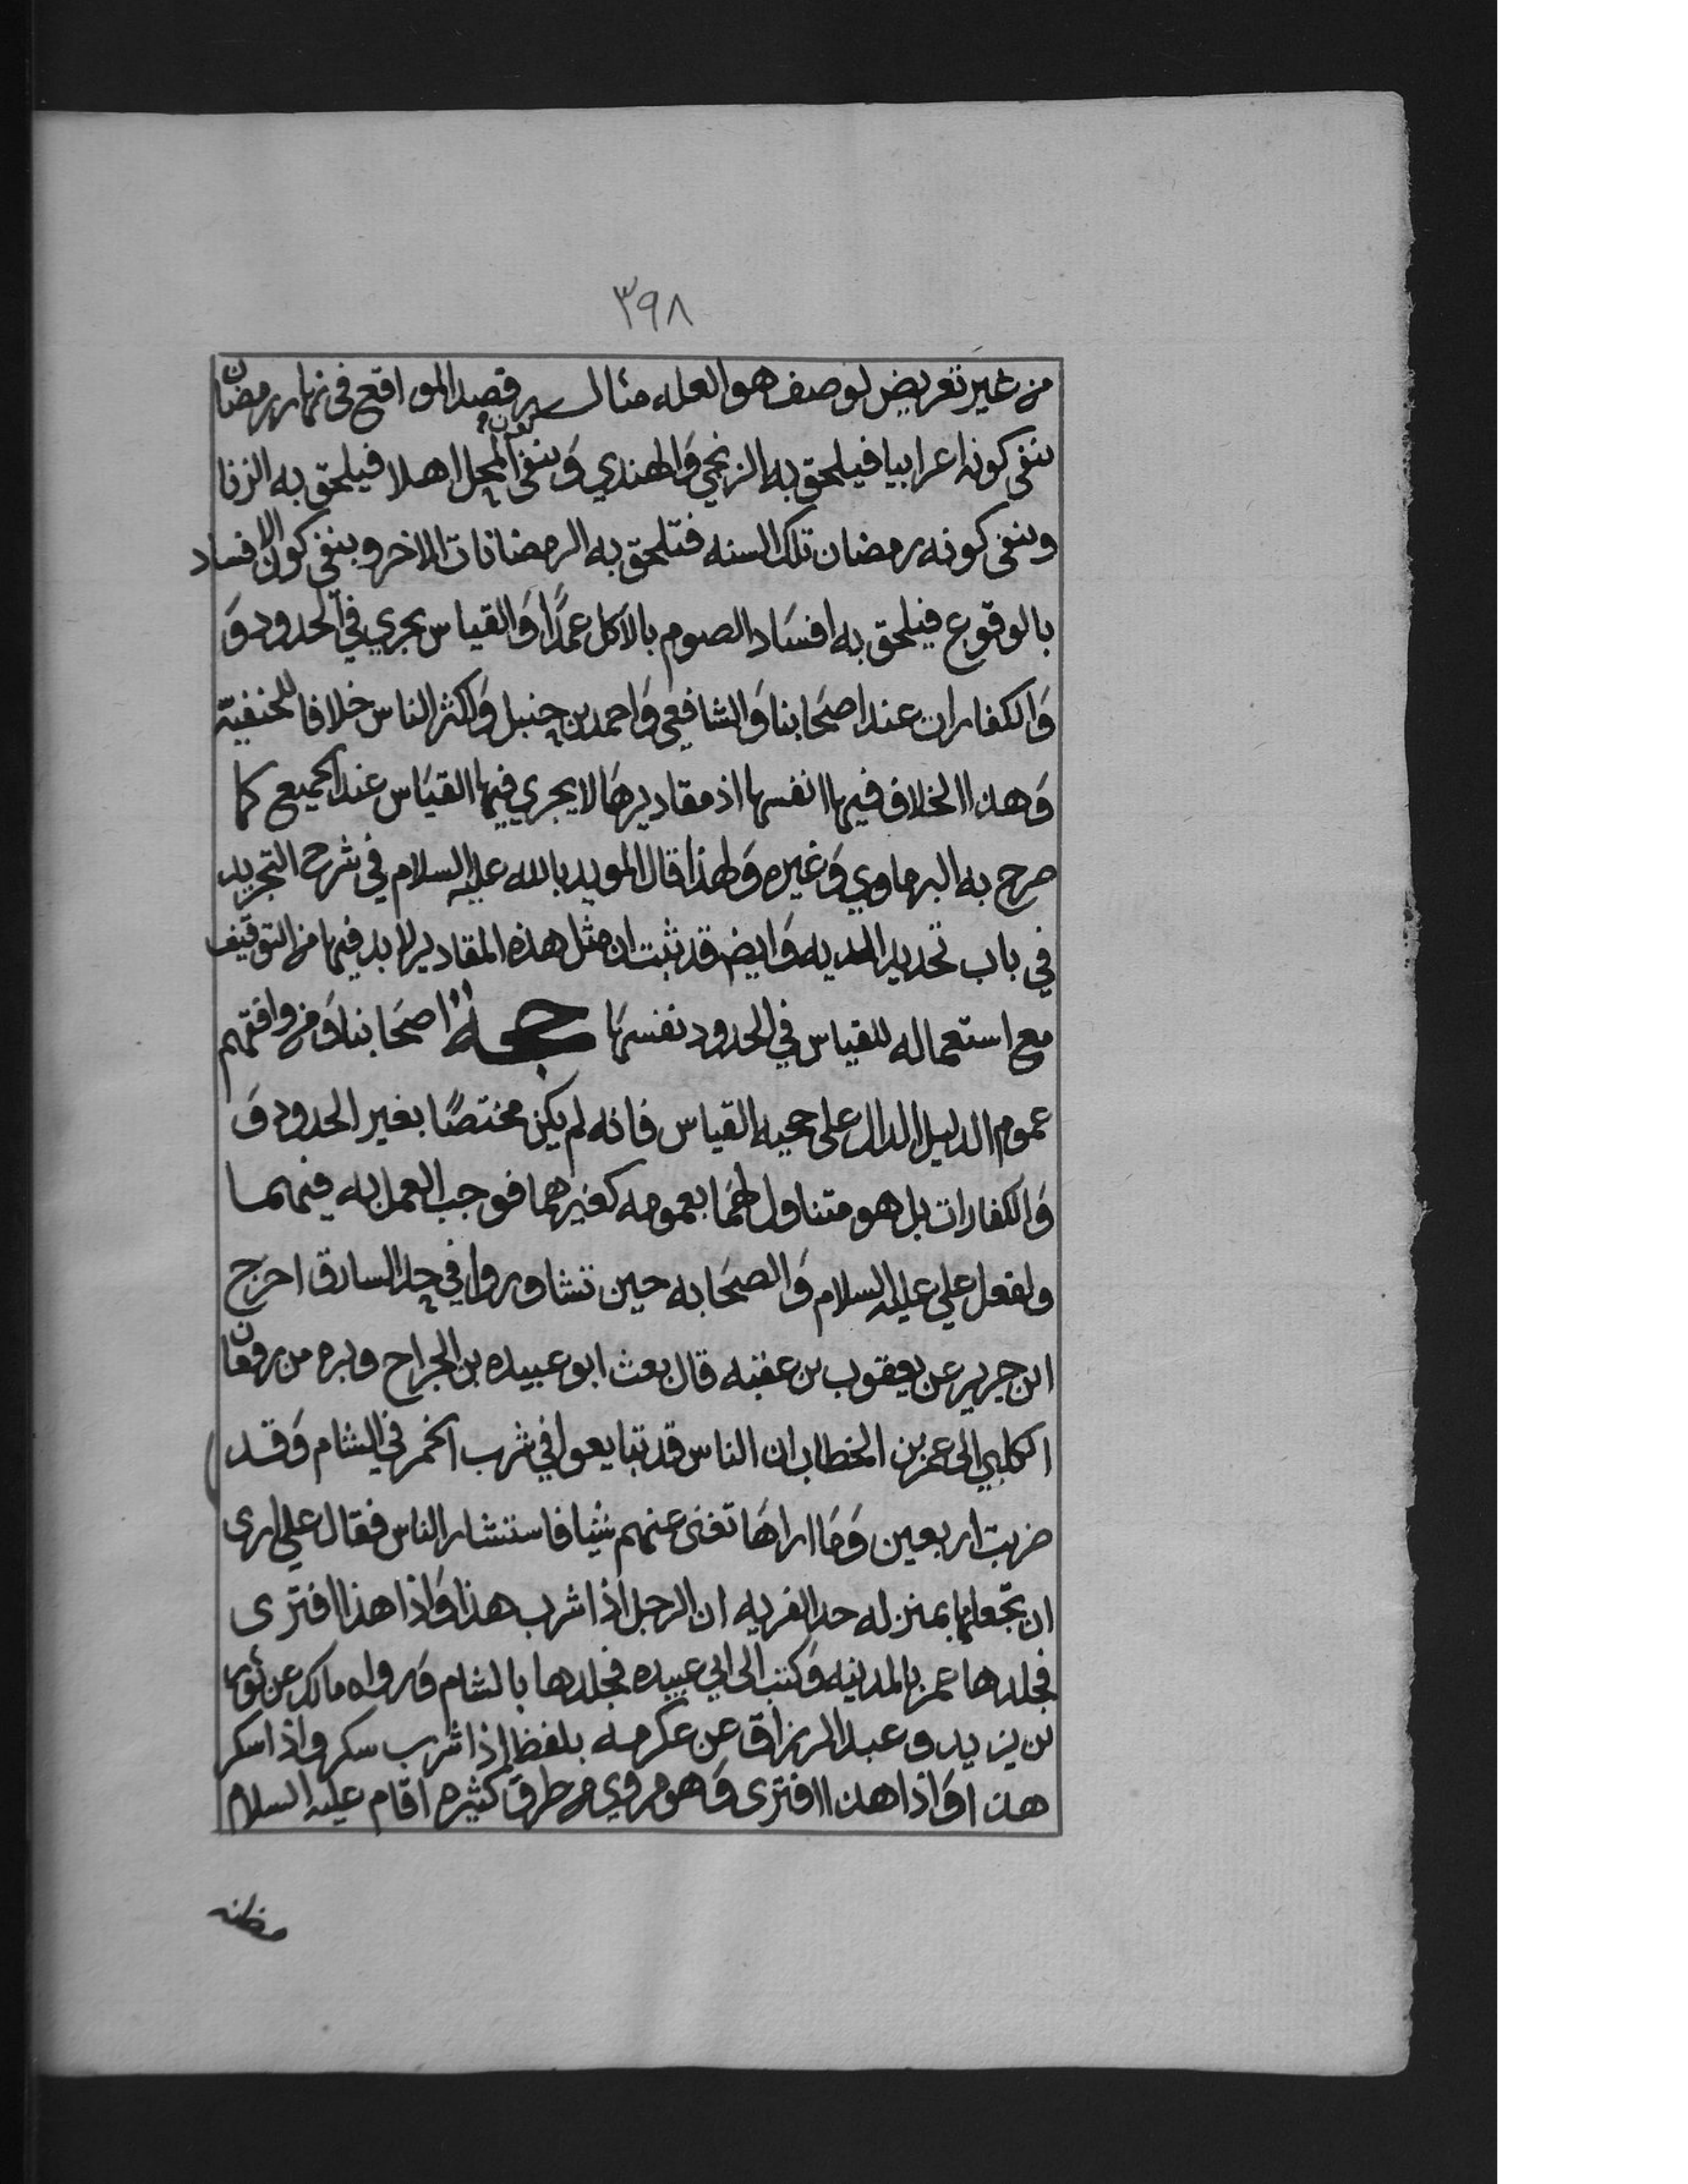 ٣٩٨
من غير تعريض لوصف هو العله مثاله قصد المواقع في نهار رمضان
بنفي كونه اعرابيا فيلحق به الزنجي وَالهندي وَبنفي كون المحل اهلا فيلحق به الزنا
وبنفي كونه رمضان تلك السنه فتلحق به الرمضانات الاخر وبنفي كون الافساد
بالوقوع فيلحق به افسَاد الصوم بالاكل عمدًا وَالقياس يجري في الحدود وَ
وَالكفارات عند اصحَابنا وَالشافعي وَاحمد بن حنبل وَاكثر الناس خلافا للحنفيّة
وَهذا الخلاف فيها انفسها اذ مقاديرهَا لا يجري فيها القيَاس عند الجميع كما
صرح به البرماوي وَغيره وَلهذا قال المويد بالله عليه السلام في شرح التجريد
في باب تحديد الديه وَايض قد ثبت ان مثل هذه المقادير لابد فيها من التوقيف
مع استعماله للقياس في الحدود نفسهَا حجة اصحَابنا وَمن وافقهم
عموم الدليل الدال على حجيه القياس فانه لم يكن مختصًا بغير الحدود وَ
وَالكفارات بل هو متناول لهمَا بعمومه كغيرهما فوجب العمل به فيهما
ولفعل علي عليه السلام وَالصحَابه حين تشاوروا في حد السارق اخرج
ابن جرير عن يعقوب بن عقبه قال بعث ابو عبيده بن الجراح وبره من رومان
الكلبي الى عمر بن الخطاب ان الناس قد تبايعوا في شرب الخمر في الشام وَقد
ضربت اربعين وَمَا اراهَا تغنى عنهم شيا فاستشار الناس فقال علي ارى
ان تجعلها بمنزله حد الفريه ان الرجل اذا شرب هذا وَاذا هذا افترى
فجلدها عمر بالمدينه وَكتب الى ابي عبيده فجلدها بالشام وَرواه مالك عن ثور
بن يزيد و عبد الرزاق عن عكرمه بلفظ اذا شرب سكر واذا سكر
هذا وَاذا هذا افترى وَهو مروي من طرق كثيره اقام عليه السلام
مظنه